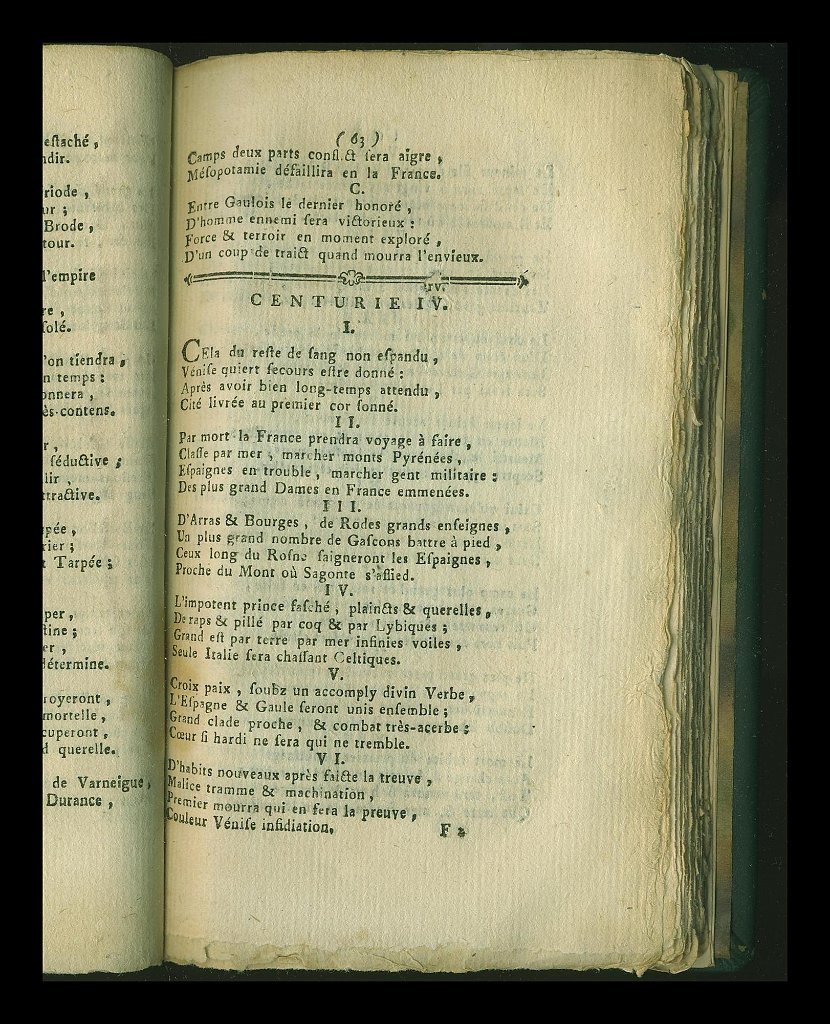 eſtaché ,
dir.
riode ,
ur ;
Brode ,
tour.
l'empire
re ,
ſolé.
'on tiendra ,
n temps :
onnera ,
ès-contens.
r ,
ſéductive ;
lir ,
ttractive.
pée ,
rier ;
t Tarpée ;
per ,
tine ;
er ,
détermine.
royeront ,
mortelle ,
cuperont ,
d querelle.
de Varneigue ,
Durance ,
( 63 )
Camps deux parts conflict ſera aigre ,
Méſopotamie défaillira en la France.
C.
Entre Gaulois le dernier honoré ,
D'homme ennemi ſera victorieux :
Force & terroir en moment exploré ,
D'un coup de traict quand mourra l'envieux.
IV.
CENTURIE IV.
I.
CEla du reſte de ſang non eſpandu ,
Véniſe quiert ſecours eſtre donné :
Après avoir bien long-temps attendu ,
Cité livrée au premier cor ſonné.
II.
Par mort la France prendra voyage à faire ,
Claſſe par mer , marcher monts Pyrénées ,
Eſpaignes en trouble , marcher gent militaire :
Des plus grand Dames en France emmenées.
III.
D'Arras & Bourges , de Rodes grands enſeignes ,
Un plus grand nombre de Gaſcons battre à pied ,
Ceux long du Roſne ſaigneront les Eſpaignes ,
Proche du Mont où Sagonte s'aſſied.
IV.
L'impotent prince faſché , plaincts & querelles ,
De raps & pillé par coq & par Lybiques ;
Grand eſt par terre par mer infinies voiles ,
Seule Italie ſera chaſſant Celtiques.
V.
Croix paix , ſoubz un accomply divin Verbe ,
L'Eſpagne & Gaule ſeront unis enſemble ;
Grand clade proche , & combat très-acerbe :
Cœur ſi hardi ne ſera qui ne tremble.
VI.
D'habits nouveaux après faicte la treuve ,
Malice tramme & machination ,
Premier mourra qui en fera la preuve ,
Couleur Véniſe inſidiation.
F 2